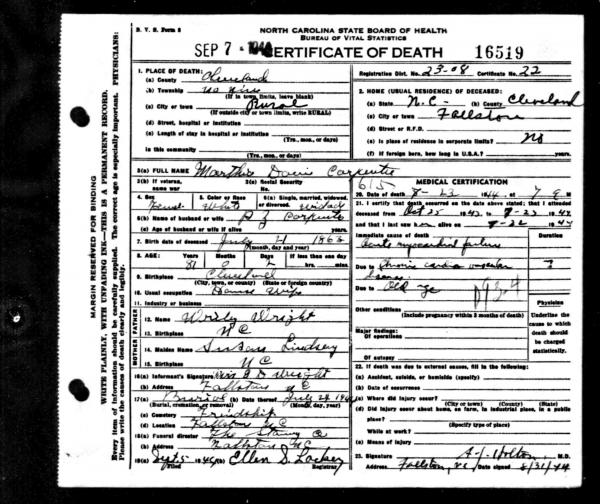 D. V. S. Form 8
NORTH CAROLINA STATE BOARD OF HEALTH
BUREAU OF VITAL STATISTICS
SEP 7 - 1944 CERTIFICATE OF DEATH 16519
Registration Dist. No. 23-08 Certificate No. 22
1. PLACE OF DEATH:
(a) County Cleveland
(b) Township
(If in town limits, leave blank)
(c) City or town Rural
(If outside city or town limits, write RURAL)
(d) Street, hospital or institution
(e) Length of stay in hospital or institution
(Yrs., mos., or days)
In this community
(Yrs., mos., or days)
2. HOME (USUAL RESIDENCE) OF DECEASED:
(a) State N.C. (b) County Cleveland
(c) City or town Fallston
(d) Street or R.F.D.
(e) Is place of residence in corporate limits? No
(f) If foreign born, how long in U.S.A.? Yrs.
3(a) FULL NAME Marthie Carpenter
3(b) If veteran, name war
3(c) Social Security No.
4. Sex Female
5. Color or Race White
6(a) Single, married, widowed, or divorced.
6(b) Name of husband or wife P Z Carpenter
6(c) Age of husband or wife if alive years
7. Birth date of deceased 1863
(Month, day, year)
8. AGE: Years 81 Months Days If less than one day
hrs. mins.
9. Birthplace
(City, town, or county) (State or foreign country)
10. Usual occupation House Wife
11. Industry or business
FATHER
12. Name Wright
13. Birthplace N C
MOTHER
14. Maiden Name Susan Lindsey
15. Birthplace N C
16(a) Informant's Signature Wright
(b) Address Fallston N C
17(a) Burial (b) Date thereof
(Burial, cremation, or removal) (Month, day, year)
(c) Cemetery Friendship
(d) Location Fallston N C
18(a) Funeral director
(b) Address Fallston N C
19(a) Sept 5 1944 Ellen S. Lackey
Registrar
615
MEDICAL CERTIFICATION
20. Date of death 8-23 1944 at 7 M
21. I certify that death occurred on the date above stated; that I attended
deceased from Oct 25 1943 to 8-23 1944
and that I last saw alive on 8-22 1944
Immediate cause of death Duration
Acute myocardial failure
Due to Chronic cardio vascular ?
Due to Old age
093-4
Other conditions
(Include pregnancy within 3 months of death)
Major findings:
Of operation
Of autopsy
Physician
Underline the cause to which death should be charged statistically.
22. If death was due to external causes, fill in the following:
(a) Accident, suicide, or homicide (specify)
(b) Date of occurrence
(c) Where did injury occur?
(City or town) (County) (State)
(d) Did injury occur about home, on farm, in industrial place, in a public place?
(Specify type of place)
While at work?
(e) Means of injury
23. Signature M.D.
Address Fallston, NC Date signed 8/31/44
MARGIN RESERVED FOR BINDING
WRITE PLAINLY, WITH UNFADING INK—THIS IS A PERMANENT RECORD.
Every item of information should be carefully supplied. The correct age is especially important. PHYSICIANS:
Please write the causes of death clearly and legibly.